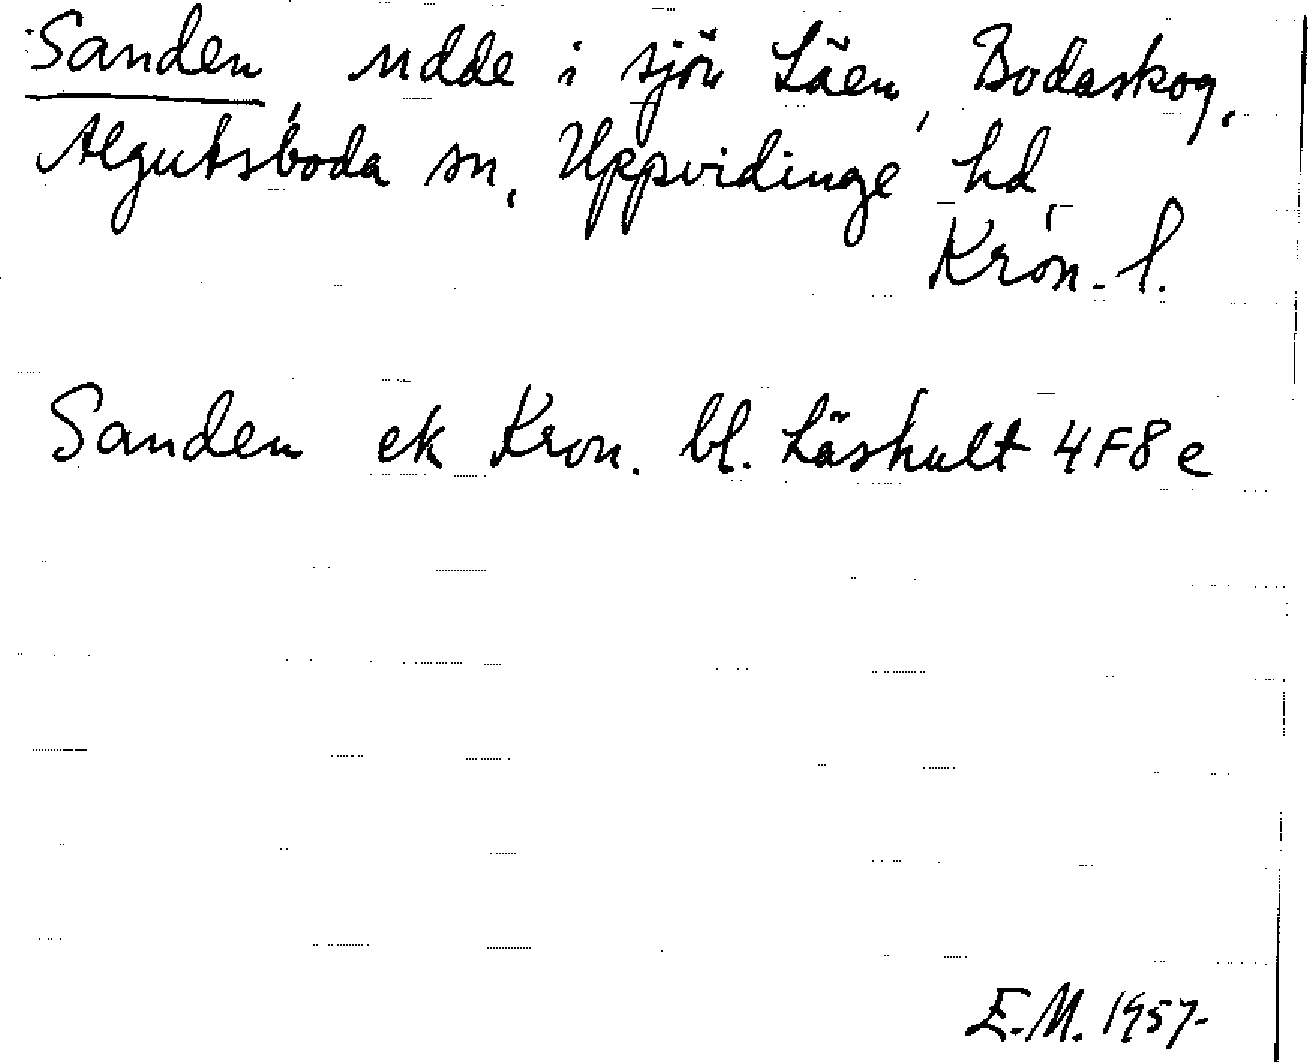 Sanden, udde i sjön Läen, Bodaskog,
Algutsboda sn, Uppvidinge hd,
Kron. l.
Sanden ek Kron. bl. Läshult 4F8e
E.M. 1957.